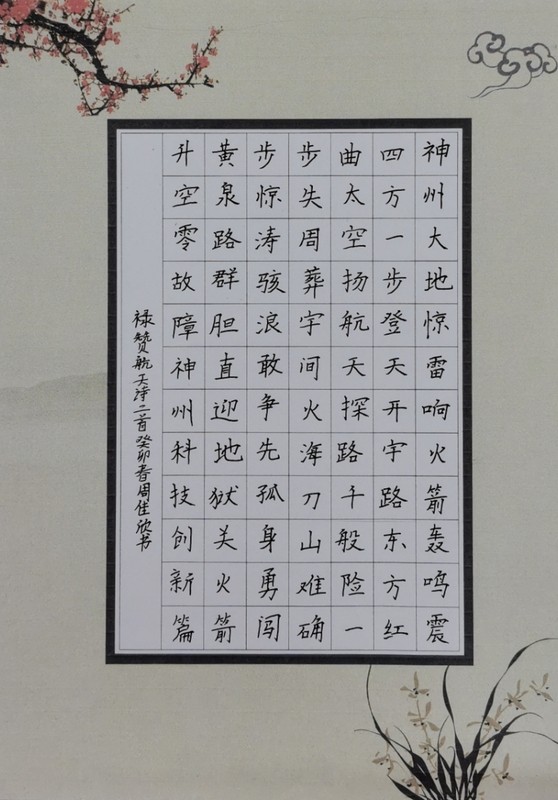 神州大地惊雷响火箭轰鸣震
四方一步登天开宇路东方红
曲太空扬航天探路千般险一
步失周葬宇间火海刀山难确
步惊涛骇浪敢争先孤身勇闯
黄泉路群胆直迎地狱关火箭
升空零故障神州科技创新篇
禄赞航天诗三首癸卯春周佳欣书